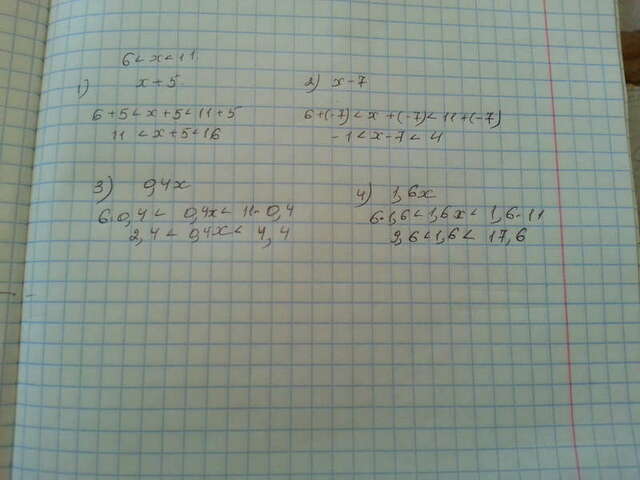 6 < x < 11
1) x + 5
6 + 5 < x + 5 < 11 + 5
11 < x + 5 < 16
2) x - 7
6 + (-7) < x + (-7) < 11 + (-7)
- 1 < x - 7 < 4
3) 0,4x
6·0,4 < 0,4x < 11·0,4
2,4 < 0,4x < 4,4
4) 1,6x
6·1,6 < 1,6x < 1,6·11
9,6 < 1,6 < 17,6